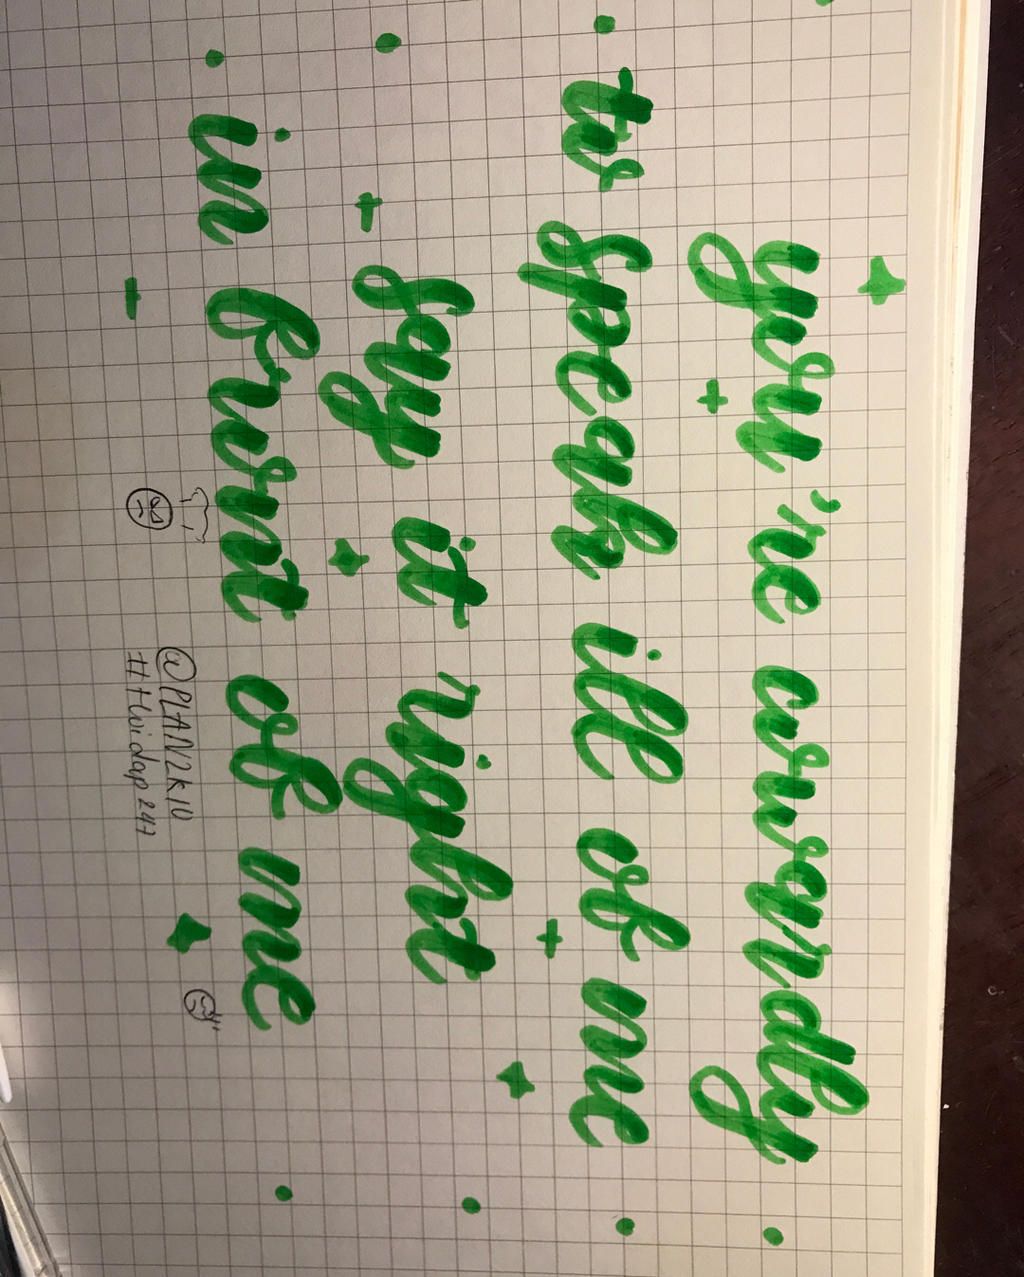 you're cowardly
to speak ill of me
say it right
in front of me
@PLAN2K10
#twidap247